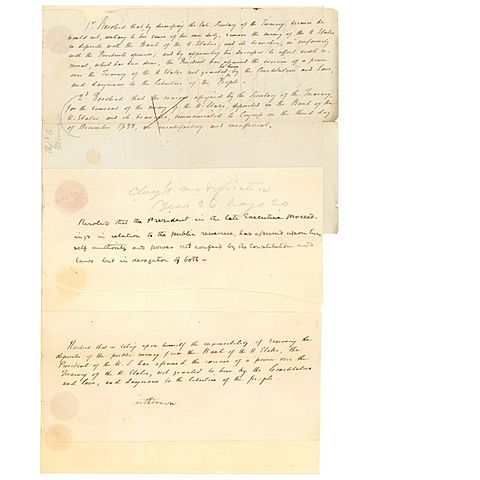 1st Resolved that by dismissing the late Secretary of the Treasury, because he
would not, contrary to his sense of his own duty, remove the money of the U. States
in deposite with the Bank of the U. States, and its branches, in conformity
with the President's opinion; and by appointing his successor to effect such re-
moval, which has been done, the President has assumed the exercise of a power
over the Treasury of the U. States not granted to him by the Constitution and laws,
and dangerous to the liberties of the People.
2d Resolved that the reasons assigned by the Secretary of the Treasury
for the removal of the money of the U. States, deposited in the Bank of the
U. States and its branches, communicated to Congress on the third day
of December 1833, are unsatisfactory and insufficient.
Clay's modification
Yeas 26 Nays 20
Resolved that the President in the late Executive proceed-
ings in relation to the public revenue, has assumed upon him
self authority and power not conferred by the Constitution and
laws but in derogation of both -
Resolved that in taking upon himself the responsibility of removing the
deposites of the public money from the Bank of the U. States, the
President of the U. S. has assumed the exercise of a power over the
Treasury of the U. States, not granted to him by the Constitution
and laws, and dangerous to the liberties of the people.
withdrawn